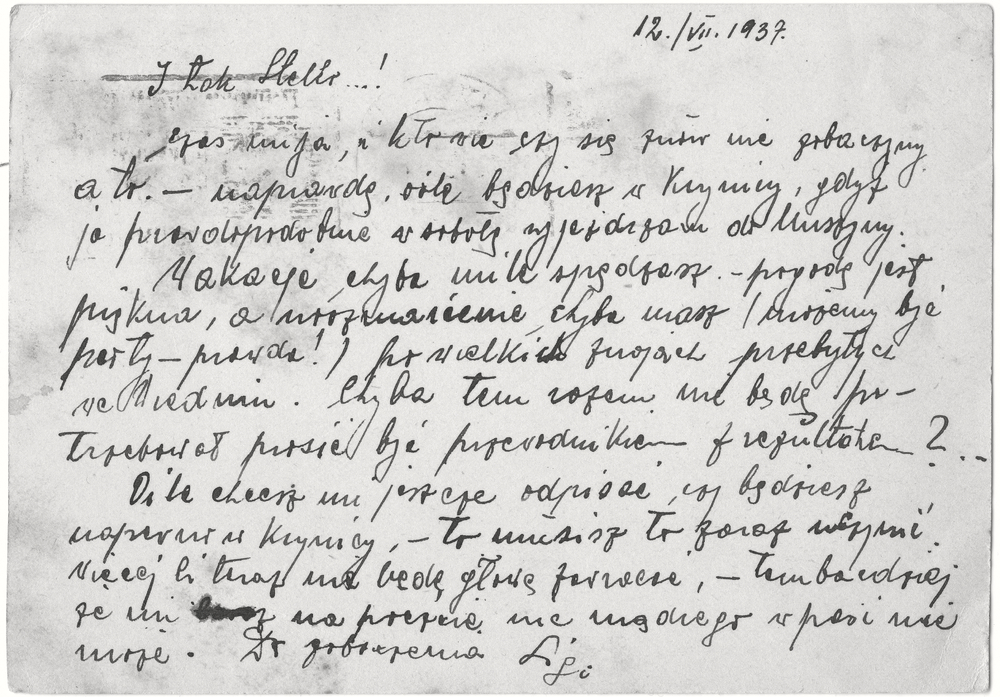 12./VII. 1937.
I tak Stello...!
Czas mija, i kto wie czy się znów nie zobaczymy
a to. — naprawdę, o ile będziesz w Krynicy, gdyż
ja prawdopodobnie w sobotę wyjeżdżam do Muszyny.
Wakacje chyba mile spędzasz. - pogoda jest
piękna, a urozmaicenie chyba masz (możemy być
party — prawda!) po wielkich znojach przebytych
we Wiedniu. Chyba tem razem nie będę po-
trzebował prosić być przewodnikiem z rezultatem ?..
O ile chcesz mi jeszcze odpisać, czy będziesz
napewno w Krynicy, — to musisz to zaraz uczynić.
Więcej Ci teraz nie będę głowę zawracać, — tembardziej
że mi na prędce nic mądrego wpaść nie
może. Do zobaczenia